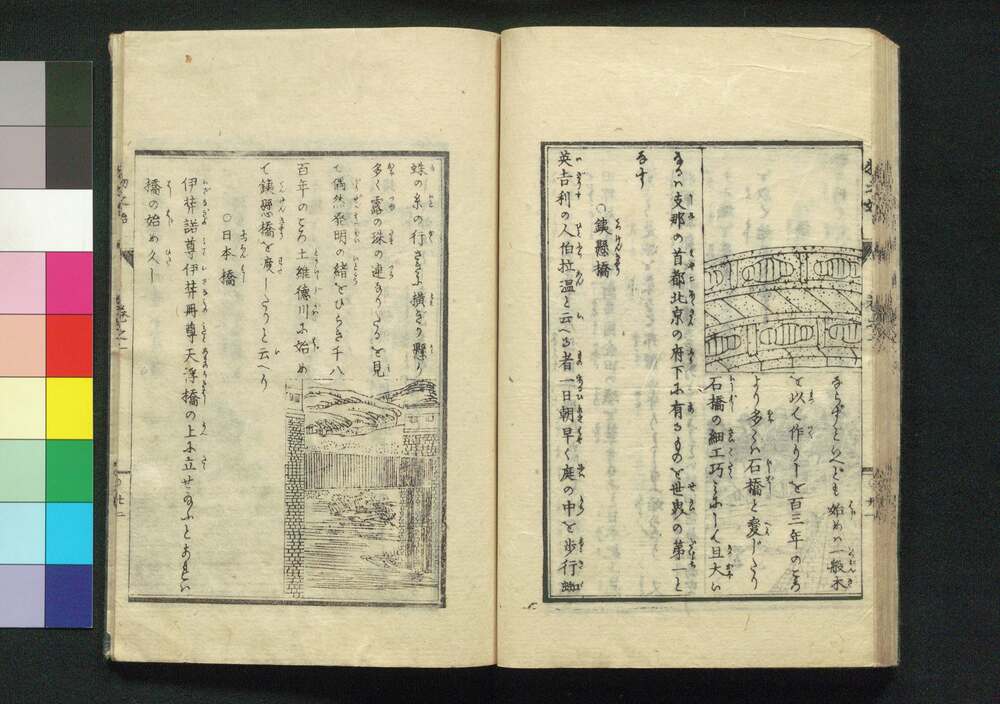 ならずといへども始めハ一般木
を以て作りしを百三年のころ
より多くハ石橋と変じたり
石橋の細工巧にして且大い
なるハ支那の首都北京の府下に有るものを世界の第一と
なす
○鉄懸橋
英吉利の人伯拉温と云へる者一日朝早く庭の中を歩行蜘
蛛の糸の行きかふ横ぎり懸り
多く露の珠の連りたるを見
て偶然発明の緒をひらき千八
百年のころ土維徳川に始め
て鉄懸橋を度したりと云へり
○日本橋
伊弉諾尊伊弉冊尊天浮橋の上に立せ給ふとあれバ
橋の始め久し